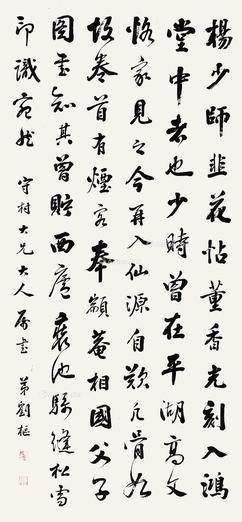 楊少師韭花帖董香光刻入鴻
堂中者也少時曾在平湖高文
恪家見之今再入仙源自歎凡骨如
故卷首有煙客奉顓菴相國父子
圖書知其曾貯西廬裝池騎縫松雪
印識宛然 守村大兄大人屬書 弟劉樞